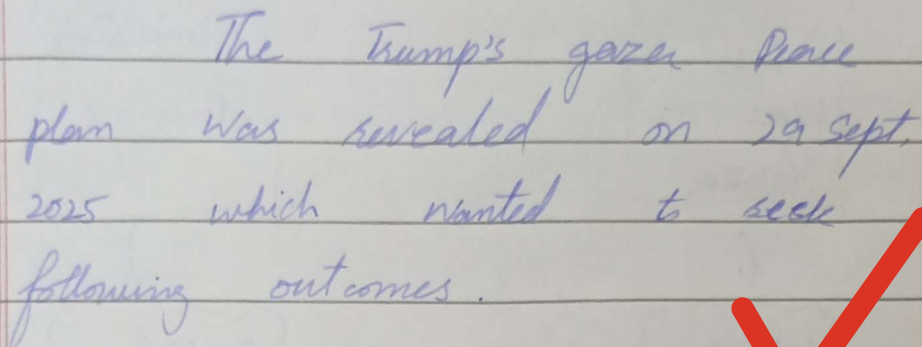 The Trump's gaza Peace
plan was revealed on 29 Sept,
2025 which wanted to seek
following outcomes.